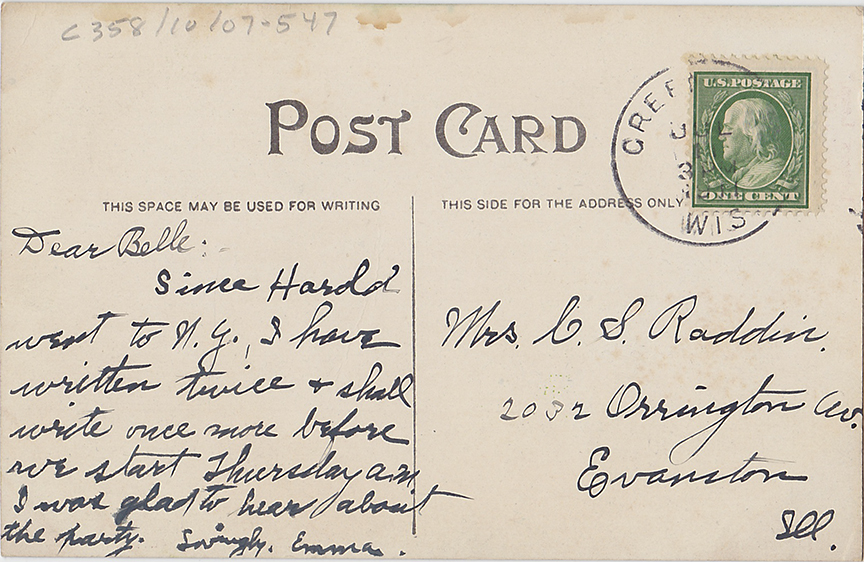 C358/10/07-547
POST CARD
THIS SPACE MAY BE USED FOR WRITING
THIS SIDE FOR THE ADDRESS ONLY
U.S. POSTAGE
ONE CENT
WIS
Dear Belle:-
Since Harold
went to N.Y., I have
written twice & shall
write once more before
we start Thursday a.m
I was glad to hear about
the party. Lovingly, Emma.
Mrs. C. S. Raddin.
2032 Orrington Av.
Evanston
Ill.